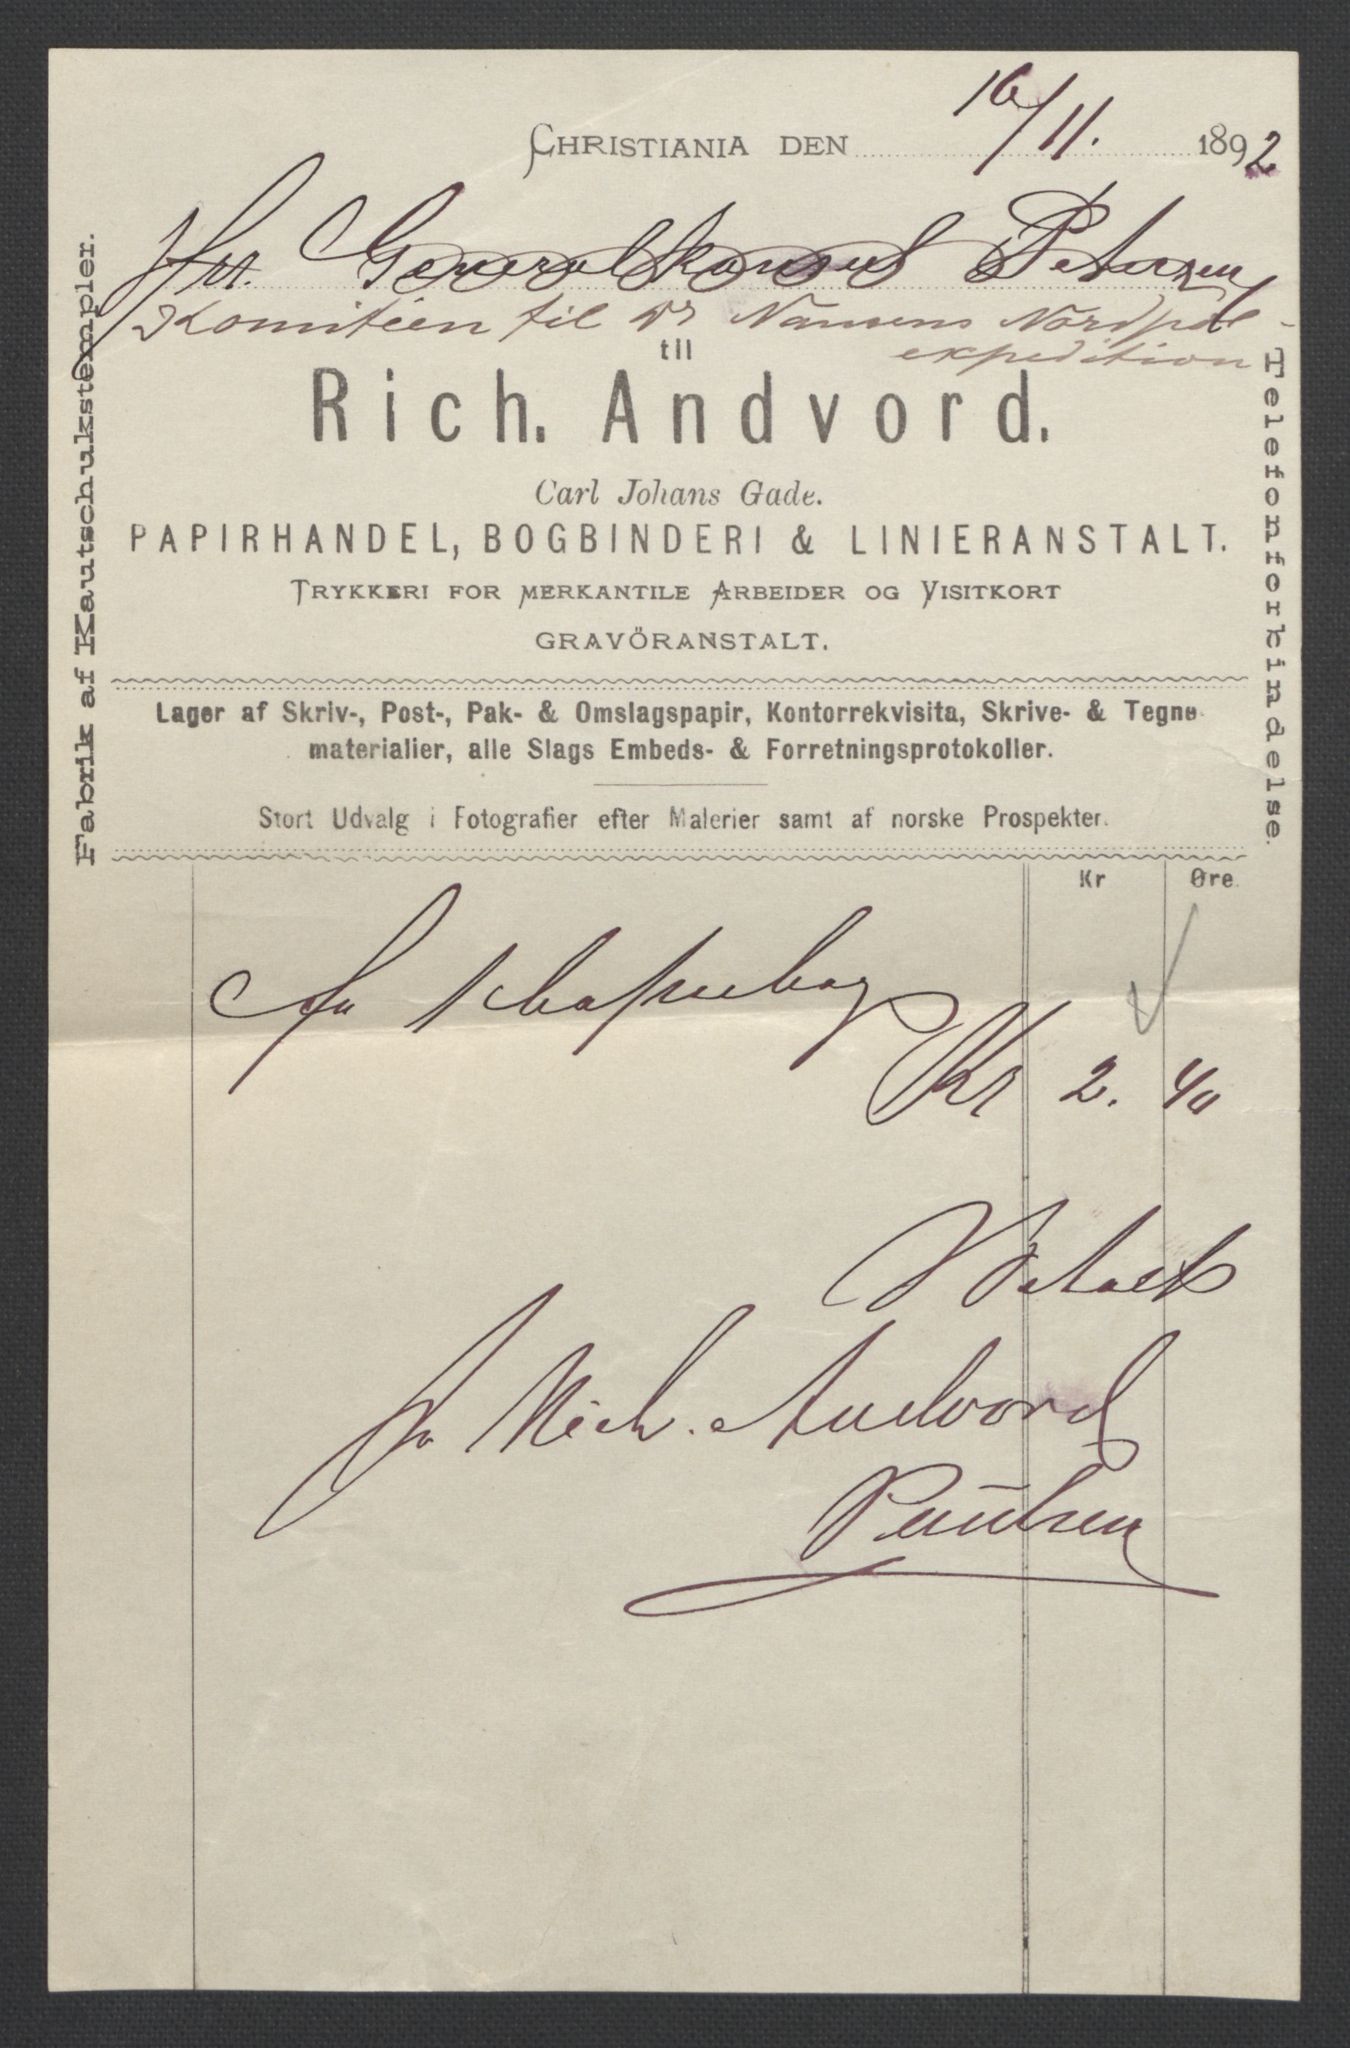 CHRISTIANIA DEN 16/11. 1892
Hrr. Generalkonsul Petersen
Komitéen til Dr Nansens Nordpol-
expedition
til
Rich. Andvord.
Carl Johans Gade.
PAPIRHANDEL, BOGBINDERI & LINIERANSTALT.
TRYKKERI FOR MERKANTILE ARBEIDER OG VISITKORT
GRAVÖRANSTALT.
Lager af Skriv-, Post-, Pak- & Omslagspapir, Kontorrekvisita, Skrive- & Tegne-
materialier, alle Slags Embeds- & Forretningsprotokoller.
Stort Udvalg i Fotografier efter Malerier samt af norske Prospekter.
Fabrik af Kautschukstempler.
Telefonforbindelse.
Kr Øre
Kr 2. 40
Betalt
pr Rich. Andvord